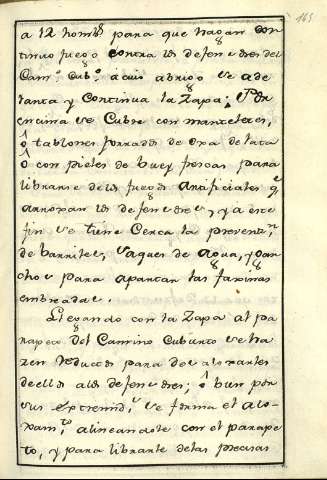 165
a 12 hombs para que hagan con
tinuo fuego contra los defensores del
Camo Cubo a cuio abrigo se ade
lanta y Continua la Zapa; Por
encima se Cubre con manteletes,
ô tablones forrados de oxa de lata
ô con pieles de buey frescas para
librarse de los fuegos Artificiales qe
arroxan los defensores, y a este
fin se tiene Cerca la prevenn
de barriles, vaques de agua, y gan
chos para apartar las faxinas
embreadas.
Llegando con la Zapa al pa
rapeto del Camino Cubierto se ha
zen reductos para desaloxarles
de ellos a los defensores; ô bien por
sus extremids se forma el alo-
xamto alineandose con el parape
to, y para librarse de las precisas